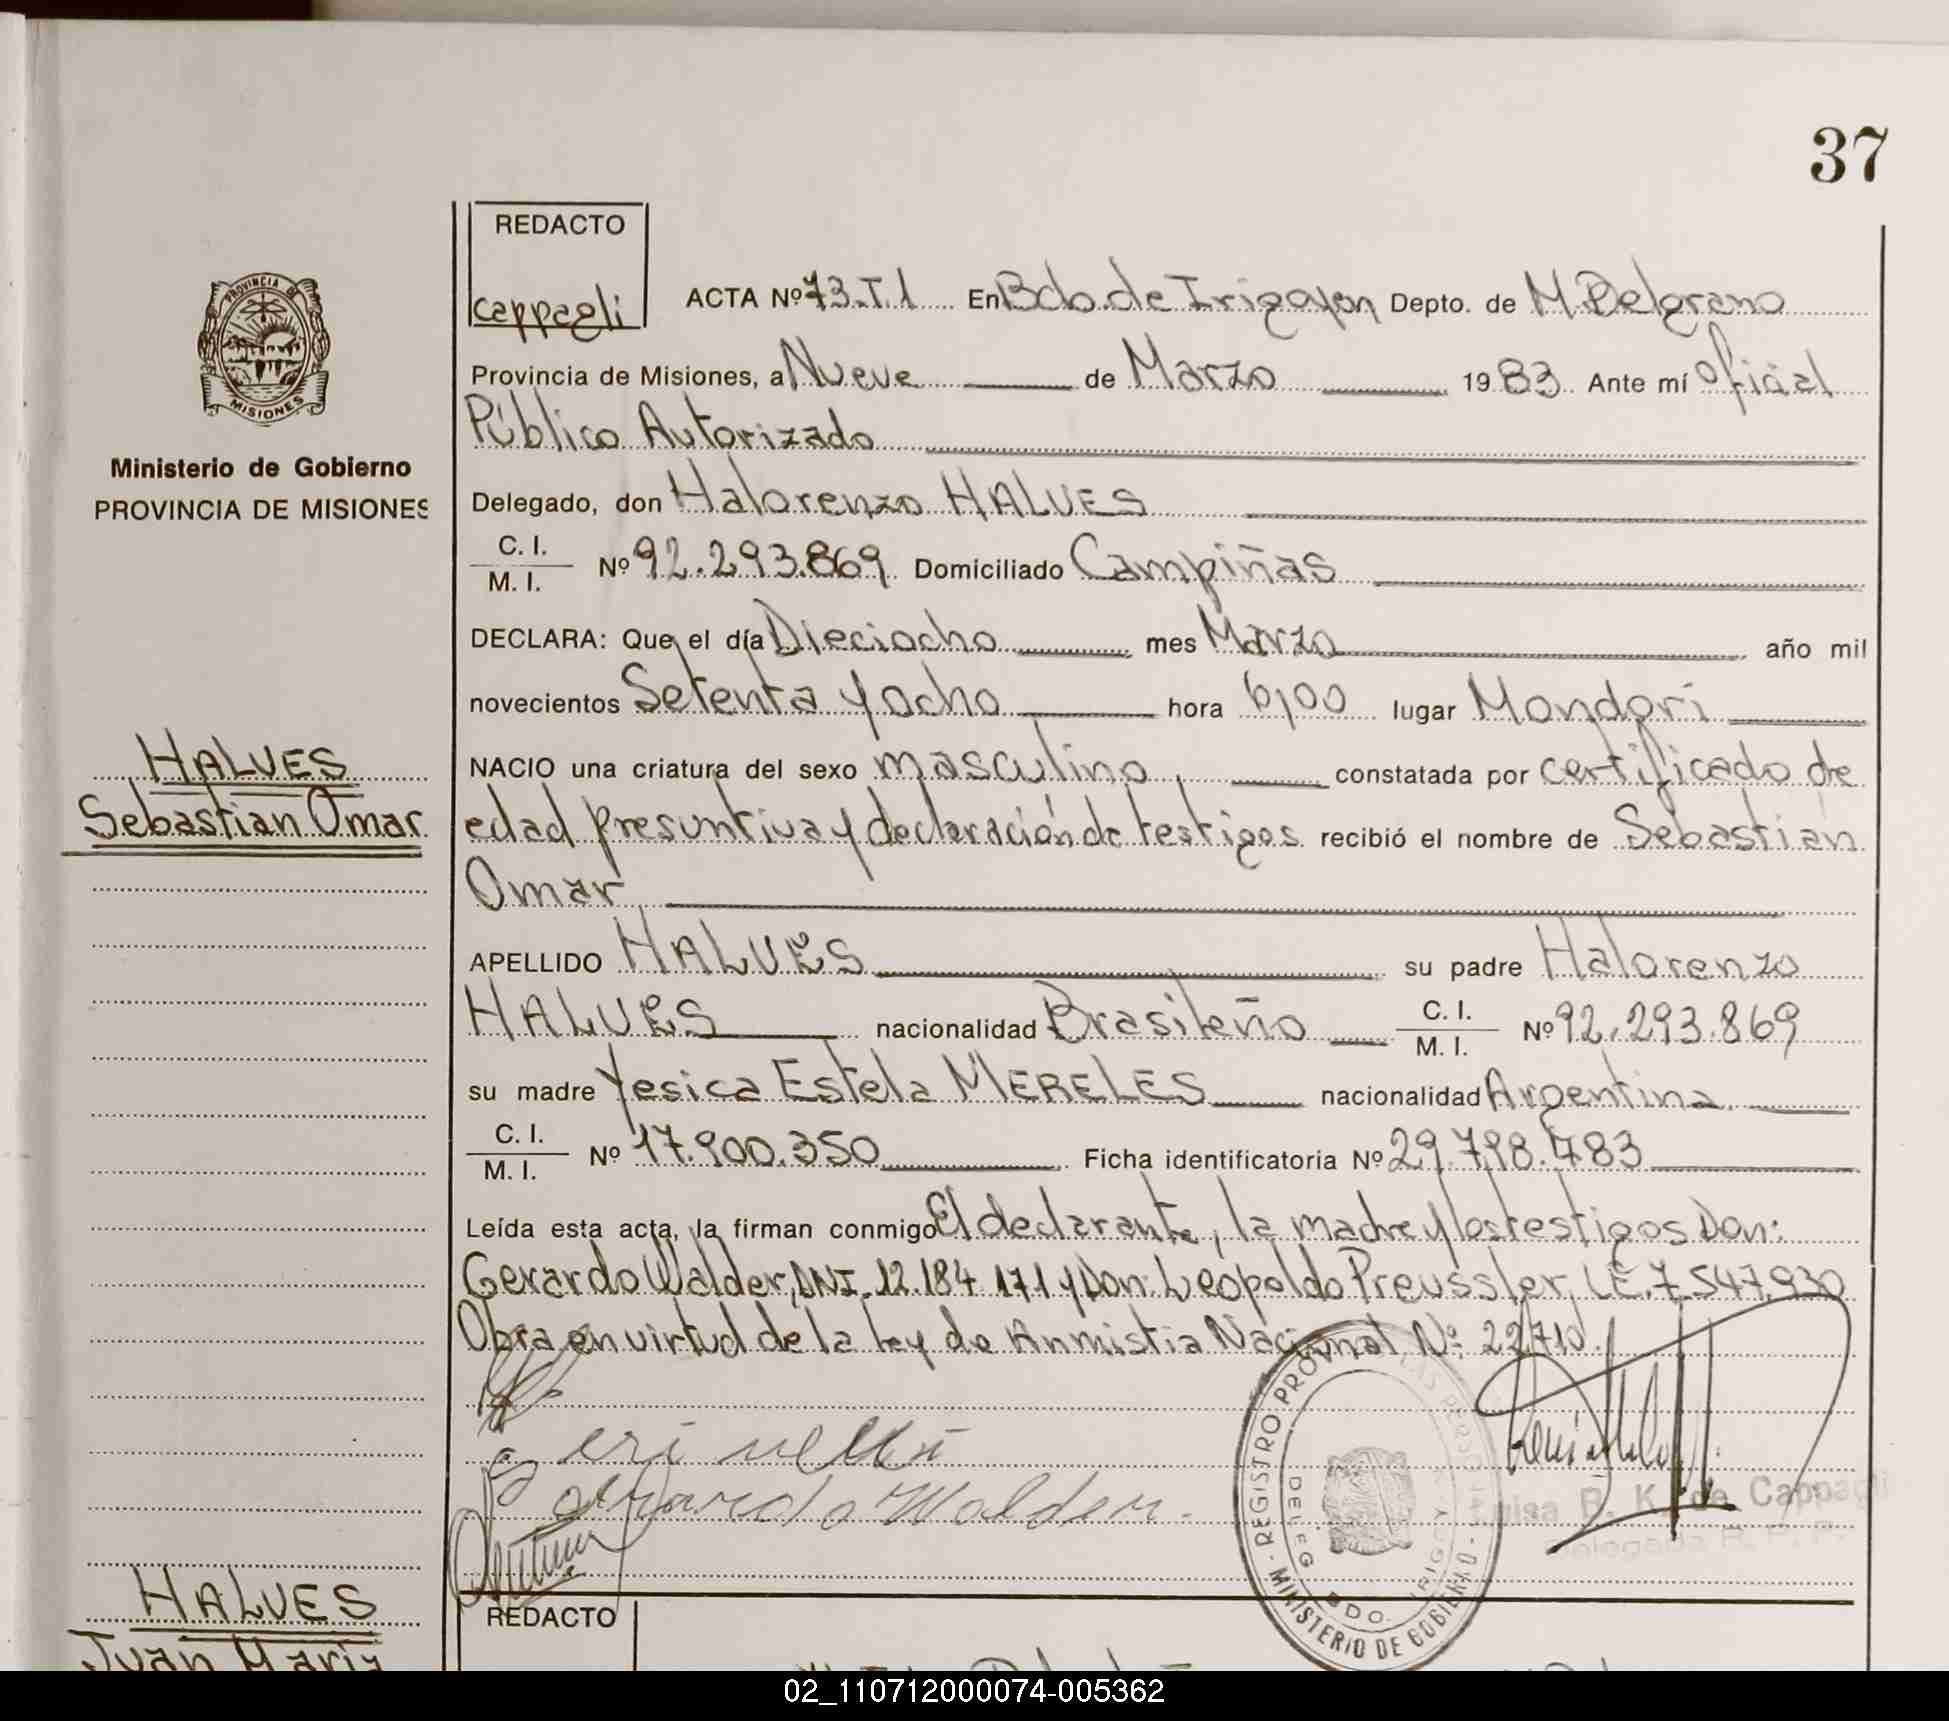 37
REDACTO
cappagli
ACTA Nº 73-T.1 En Bdo. de Irigoyen Depto. de M. Belgrano
Provincia de Misiones, a Nueve de Marzo 1983 Ante mí oficial
Público Autorizado
Delegado, don Halorenzo HALVES
C. I.
M. I. Nº 92.293.869 Domiciliado Campiñas
DECLARA: Que el día Dieciocho mes Marzo año mil
novecientos Setenta y ocho hora 6,00 lugar Mondori
NACIO una criatura del sexo masculino, constatada por certificado de
edad presuntiva y declaración de testigos recibió el nombre de Sebastian
Omar
APELLIDO HALVES su padre Halorenzo
HALVES nacionalidad Brasileño C. I.
M. I. Nº 92.293.869
su madre Yesica Estela MERELES nacionalidad Argentina
C. I.
M. I. Nº 17.900.350 Ficha identificatoria Nº 29.798.483
Leída esta acta, la firman conmigo El declarante, la madre y los testigos Don:
Gerardo Walder, DNI. 12.184.171 y Don: Leopoldo Preussler, L.E. 7.547.930
Obra en virtud de la ley de Anmistia Nacional Nº: 22710.
Gerardo Walder.
REGISTRO PROV LAS PERSO
DELEG. BDO. IRIGOY
MINISTERIO DE GOBIERNO
Luisa B. K. de Cappagli
Delegada R. P. P.
REDACTO
PROVINCIA DE
MISIONES
Ministerio de Gobierno
PROVINCIA DE MISIONES
HALVES
Sebastian Omar
HALVES
Juan María
02_110712000074-005362